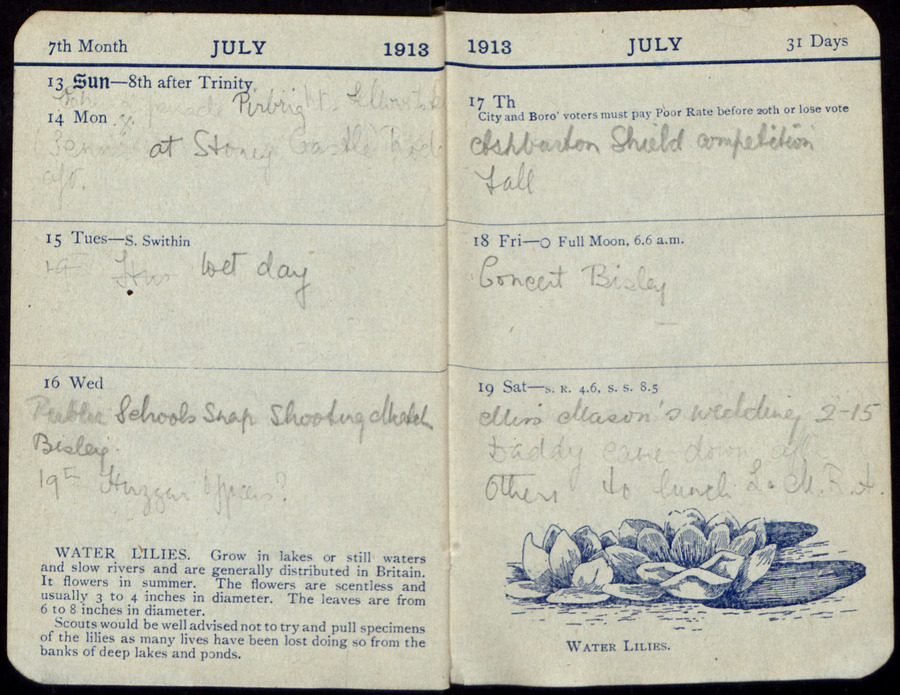 7th Month JULY 1913
13 Sun—8th after Trinity
parade Pirbright
14 Mon
at Stoney Castle
aft.
15 Tues—S. Swithin
wet day
16 Wed
Public Schools Snap Shooting Match
Bisley.
19th
WATER LILIES. Grow in lakes or still waters
and slow rivers and are generally distributed in Britain.
It flowers in summer. The flowers are scentless and
usually 3 to 4 inches in diameter. The leaves are from
6 to 8 inches in diameter.
Scouts would be well advised not to try and pull specimens
of the lilies as many lives have been lost doing so from the
banks of deep lakes and ponds.
1913 JULY 31 Days
17 Th
City and Boro' voters must pay Poor Rate before 20th or lose vote
Ashburton Shield competition
18 Fri—O Full Moon, 6.6 a.m.
Concert Bisley
19 Sat—S. R. 4.6, S. S. 8.5
Miss Mason's wedding 2-15
Daddy came down aft
Others to lunch
WATER LILIES.